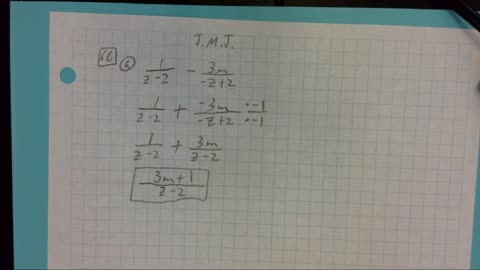 J.M.J.
66 a 1/(z-2) - 3m/(-z+2)
1/(z-2) + -3m/(-z+2) · -1/· -1
1/(z-2) + 3m/(z-2)
(3m+1)/(z-2)